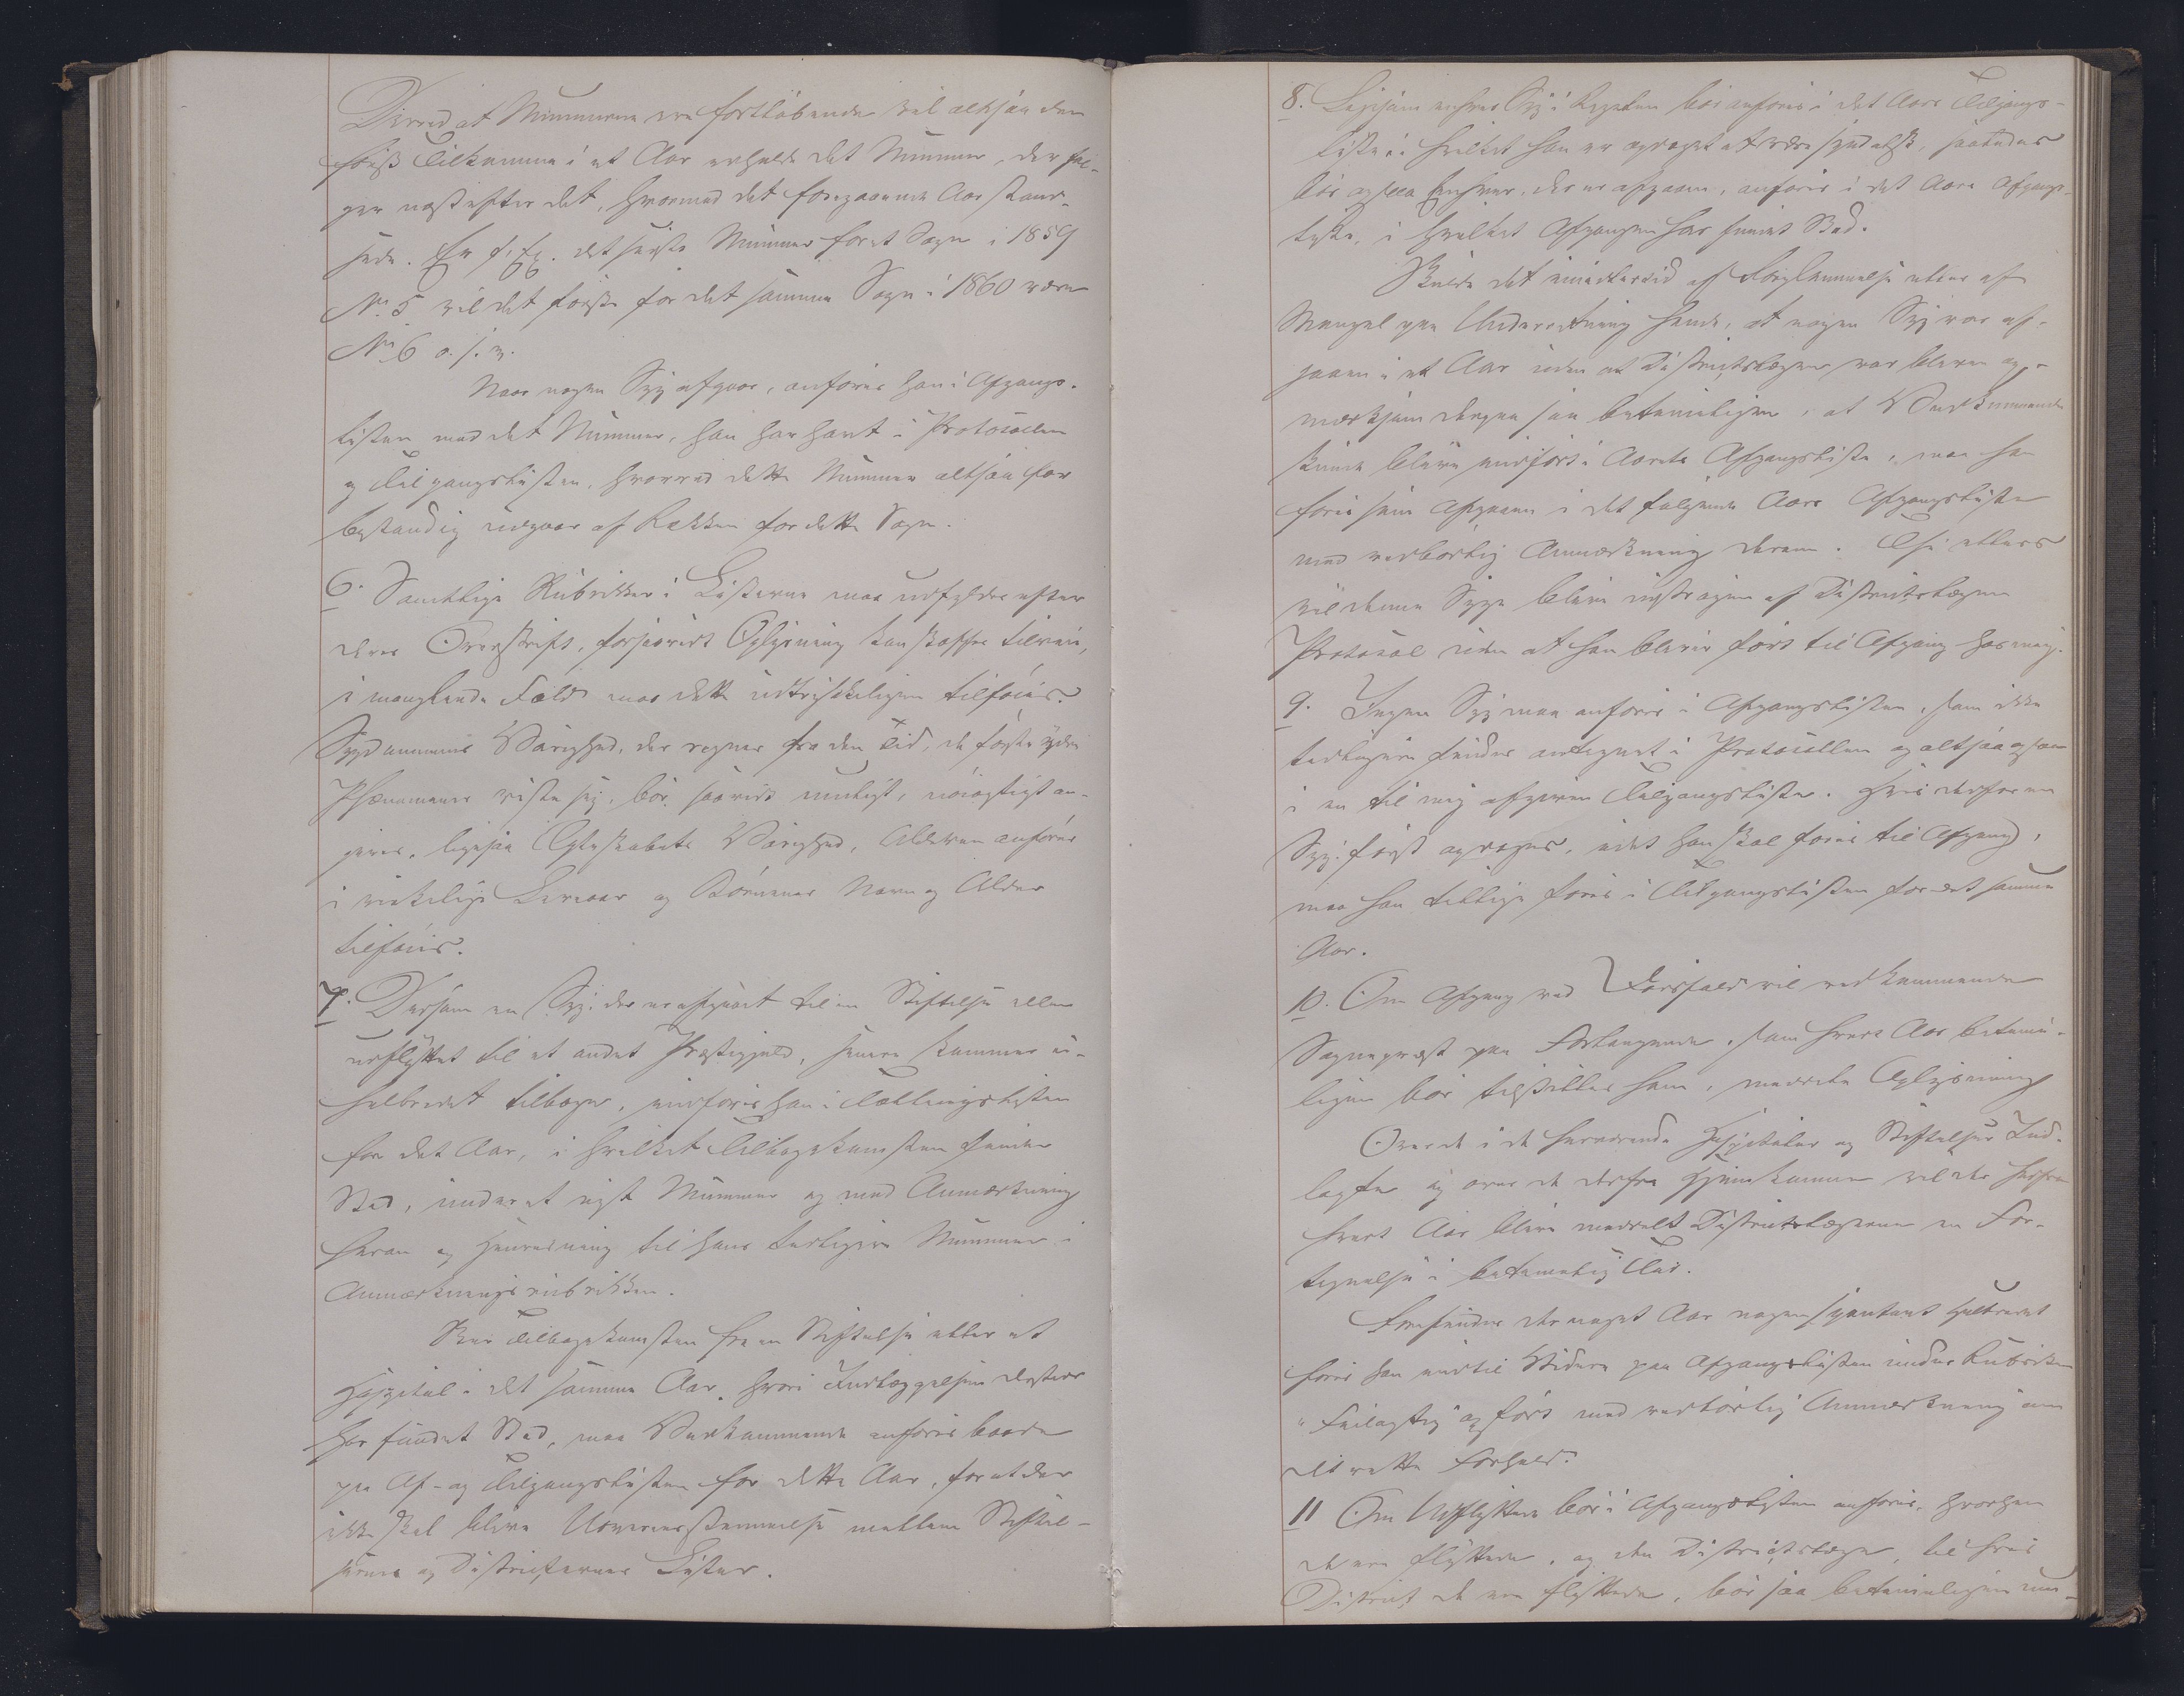 Derved at Nummerne ere fortløbende vil altsaa den
først Tilkomne i et Aar erholde det Nummer, der føl-
ger næst efter det, hvormed det foregaaende Aar stand-
sede. Er f. Ex. det sidste Nummer for et Sogn i 1859
No 5 vil det første for det samme Sogn i 1860 være
No 6 o. s. v.
Naar nogen Syg afgaar, anføres han i Afgangs-
listen med det Nummer, han har havt i Protocollen
og Tilgangslisten, hvorved dette Nummer altsaa for
bestandig udgaar af Rækken for dette Sogn.
6. Samtlige Rubrikker i Listerne maa udfyldes efter
deres Overskrift, forsaavidt Oplysning kan skaffes tilveie,
i manglende Fald maa dette udtrykkeligen tilføies.
Sygdommens Varighed, der regnes fra den Tid, de første ydre
Phænomener viste sig, bør saavidt muligt, nöiagtigt an-
gives, ligesaa Ægteskabets Varighed, Alderen anföres
i virkelige Leveaar og Börnenes Navn og Alder
tilföies.
7. Dersom en Syg, der er afgaaet til en Stiftelse eller
udflyttet til et andet Præstegjeld, senere kommer u-
helbredet tilbage, indföres han i Tællingslisten
for det Aar, i hvilket Tilbagekomsten finder
Sted, under et nyt Nummer og med Anmærkning
herom og Henvisning til hans tidligere Nummer i
Anmærkningsrubrikken.
Sker Tilbagekomsten fra en Stiftelse eller et
Hospital i det samme Aar, hvori Indlæggelsen dertil
har fundet Sted, maa Vedkommende anföres baade
paa Af- og Tilgangslisten for dette Aar, for at der
ikke skal blive Uoverensstemmelse mellem Stiftel-
sernes og Districternes Lister.
8. Ligesom enhver Syg i Regelen bör anföres i det Aars Tilgangs-
liste i hvilket han er opdaget at være spedalsk, saaledes
bör ogsaa Enhver, der er afgaaen, anföres i det Aars Afgangs-
liste, i hvilket Afgangen har fundet Sted.
Skulde det imidlertid af Forglemmelse eller af
Mangel paa Underretning hende, at nogen Syg var af-
gaaen i et Aar uden at Districtslægen var bleven op-
mærksom derpaa saa betimeligen, at Vedkommende
kunde blive indfört i Aarets Afgangsliste, maa han
föres som Afgaaen i det fölgende Aars Afgangsliste
med vedbørlig Anmærkning derom. Thi ellers
vil denne Syge blive udströgen af Districtslægens
Protokol uden at han bliver fört til Afgang hos mig.
9. Ingen Syg maa anföres i Afgangslisten, som ikke
tidligere findes antegnet i Protocollen og altsaa ogsaa
i en til mig afgiven Tilgangsliste. Hvis derfor en
Syg först opdages, idet han skal föres til Afgang,
maa han tillige föres i Tilgangslisten for det samme
Aar.
10. Om Afgang ved Dödsfald vil vedkommende
Sognepræst paa Forlangende, som hvert Aar betime-
ligen bör tilstilles ham, meddele Oplysning
Over de i de herværende Hospitaler og Stiftelser Ind-
lagte og over de derfra Hjemkomne vil der herfra
hvert Aar blive meddelt Districtslægerne en For-
tegnelse i betimelig Tid.
Forefindes der noget Aar nogen spontant Helbredet
föres han indtil Videre paa Afgangslisten under Rubriken
"Feilagtig opfört" med vedbörlig Anmærkning om
det rette Forhold.
11 Om Udflyttede bör i Afgangslisten anföres, hvorhen
de ere flyttede, og den Districtslæge, til hvis
District de ere flyttede, bör saa betimeligen un-